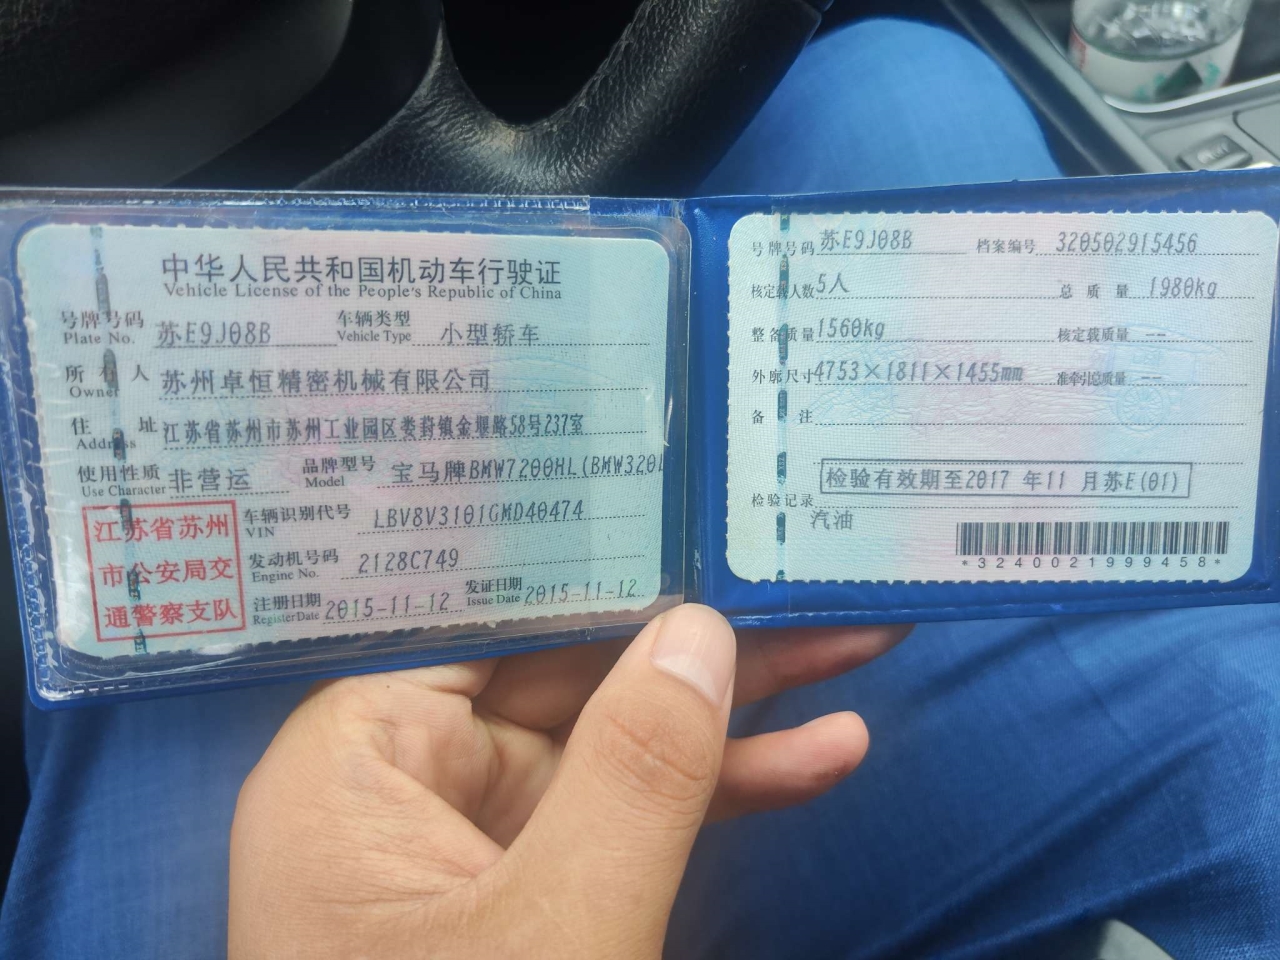 中华人民共和国机动车行驶证
Vehicle License of the People's Republic of China
号牌号码 Plate No. 苏E9J08B 车辆类型 Vehicle Type 小型轿车
所有人 Owner 苏州卓恒精密机械有限公司
住址 Address 江苏省苏州市苏州工业园区娄葑镇金堰路58号237室
使用性质 Use Character 非营运 品牌型号 Model 宝马牌BMW7200HL(BMW320L
江苏省苏州
市公安局交
通警察支队
车辆识别代号 VIN LBV8V3101GMD40474
发动机号码 Engine No. 2128C749
注册日期 Register Date 2015-11-12 发证日期 Issue Date 2015-11-12
号牌号码 苏E9J08B 档案编号 320502915456
核定载人数 5人 总质量 1980kg
整备质量 1560kg 核定载质量 --
外廓尺寸 4753×1811×1455mm 准牵引总质量 --
备注
检验有效期至2017 年11 月苏E(01)
检验记录
汽油
*3240021999458*